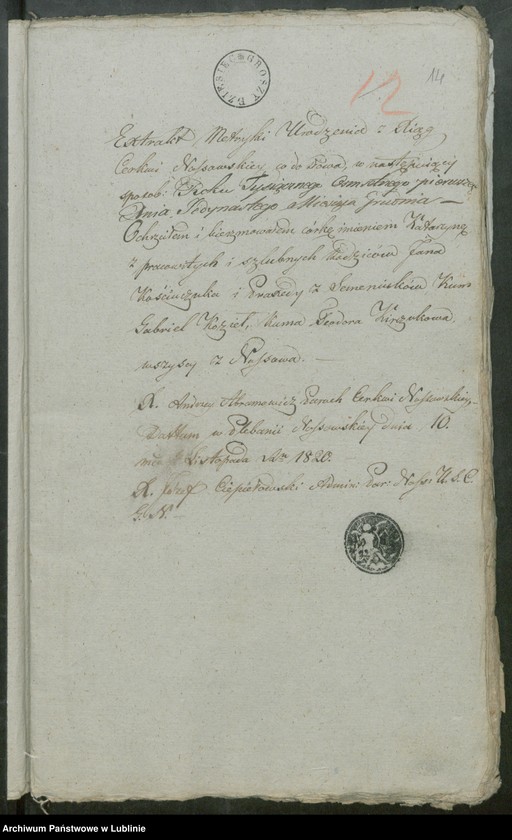 DZIESIĘC GROSZY
12 14
Extrakt Metryki Urodzenia z Xiąg
Cerkwi Nossowskiey co do słowa, w następuiący
sposob: Roku Tysiącznego Osmsetnego pierwszego
Dnia Jedynastego Miesiąca Grudnia —
Ochrzciłem i bierzmowałem córkę imieniem Katarzynę
z pracowitych i szlubnych Rodziców Jana
Kościuczuka i Praxedy z Semeniuków Kum
Gabriel Kozieł, Kuma Teodora Kirczukowa
wszyscy z Nossowa. —
X. Andrzey Abramowicz Paroch Cerkwi Nossowskiey
Dattum w Plebanii Nossowskiey dnia 10.
mca Listopada 1820.
X. Józef Admin: Par: Noss: U. S. C.
G. N.
Archiwum Państwowe w Lublinie